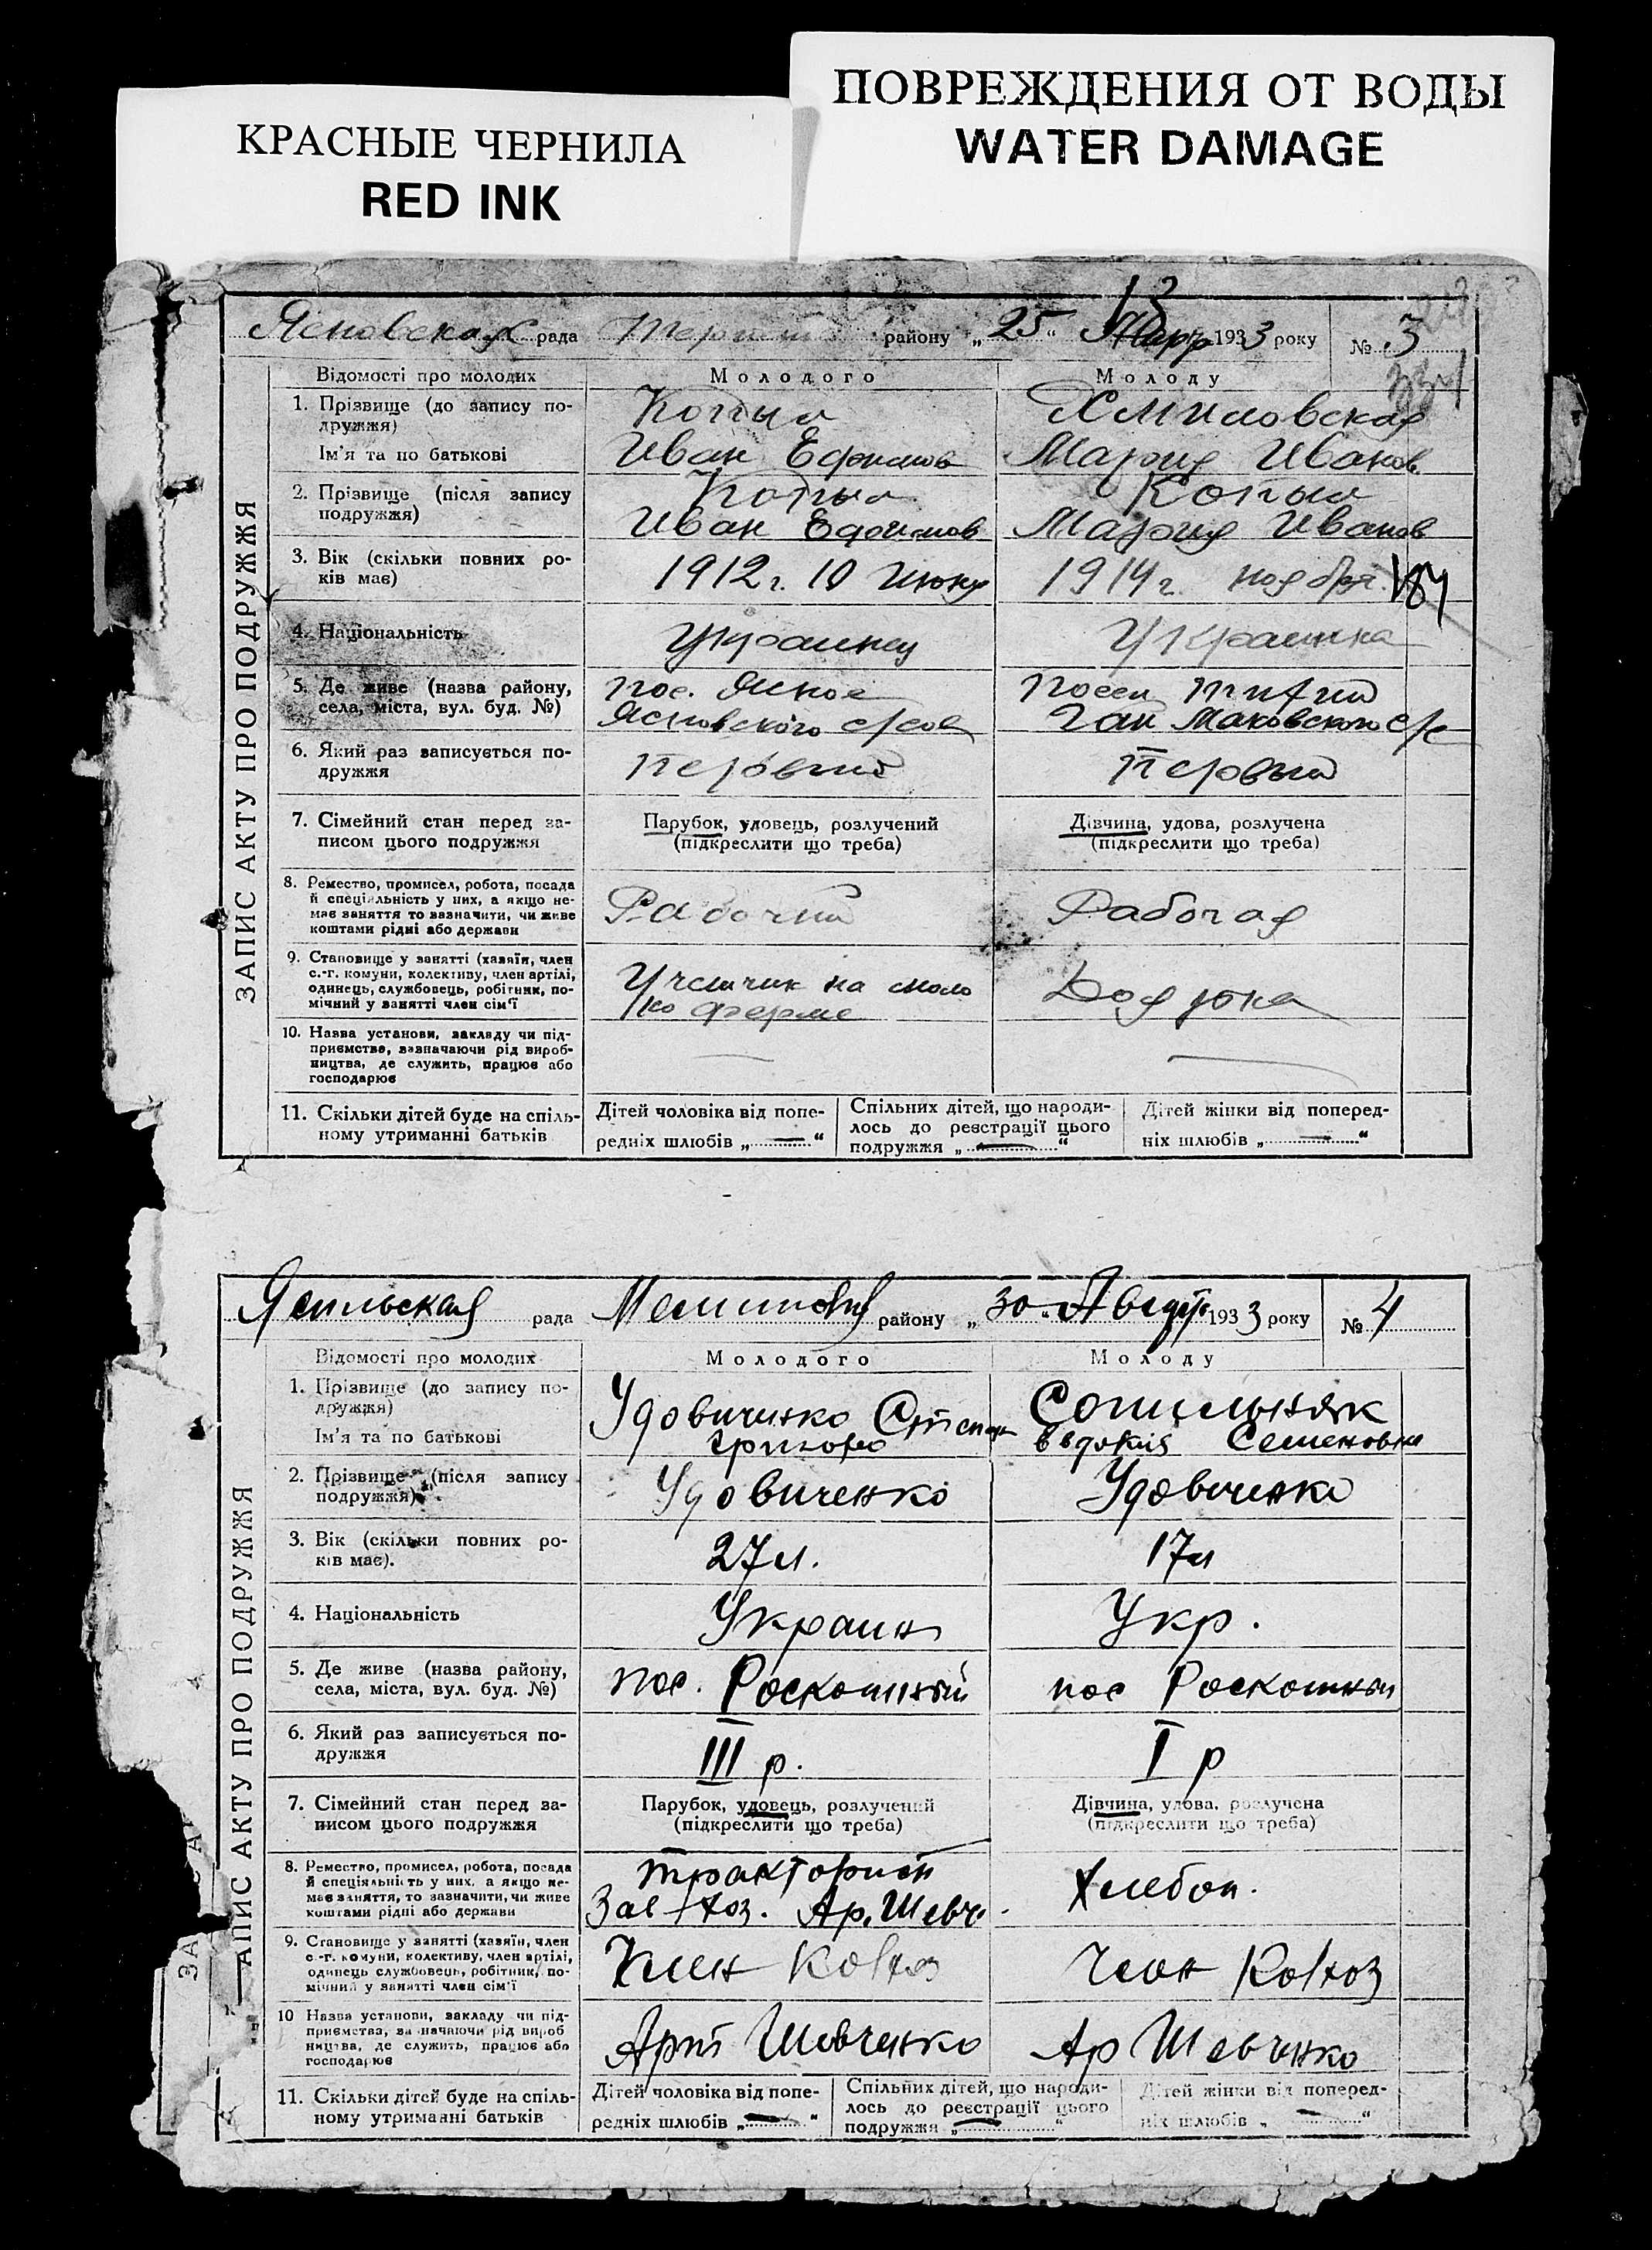 КРАСНЫЕ ЧЕРНИЛА
RED INK
ПОВРЕЖДЕНИЯ ОТ ВОДЫ
WATER DAMAGE
ЗАПИС АКТУ ПРО ПОДРУЖЖЯ
Ясновская рада району „25“ 1933 року № 3
Відомості про молодих Молодого Молоду
1. Прізвище (до запису по-
дружжя)
Копыл
Ім'я та по батькові
Иван Ефимов Мария Иванов
2. Прізвище (після запису
подружжя)
Копыл Копыл
Иван Ефимов Мария Иванов
3. Вік (скільки повних ро-
ків має)
1912 г. 10 Июня 1914 г. ноября
4. Національність
Украинец Украинка
5. Де живе (назва району,
села, міста, вул. буд. №)
пос. Ясное
Ясновского с/сов Маковского с/с
6. Який раз записується по-
дружжя
Первый Первый
7. Сімейний стан перед за-
писом цього подружжя
Парубок, удовець, розлучений
(підкреслити що треба)
Дівчина, удова, розлучена
(підкреслити що треба)
8. Ремество, промисел, робота, посада
й спеціяльність у них, а якщо не-
має заняття то зазначити, чи живе
коштами рідні або держави
Рабочий Рабочая
9. Становище у занятті (хазяїн, член
с.-г. комуни, колективу, член артілі,
одинець, службовець, робітник, по-
мічний у занятті член сім'ї
Учетчик на моло
ко ферме
Доярка
10. Назва установи, закладу чи під-
приємства, зазначаючи рід вироб-
ництва, де служить, працює або
господарює
11. Скільки дітей буде на спіль-
ному утриманні батьків
Дітей чоловіка від попе-
редніх шлюбів „ — “
Спільних дітей, що народи-
лось до реєстрації цього
подружжя „ — “
Дітей жінки від поперед-
ніх шлюбів „ — “
ЗАПИС АКТУ ПРО ПОДРУЖЖЯ
рада району „30“ Август 1933 року № 4
Відомості про молодих Молодого Молоду
1. Прізвище (до запису по-
дружжя)
Ім'я та по батькові
Удовиченко Степан
Евдокия Семеновна
2. Прізвище (після запису
подружжя)
Удовиченко Удовиченко
3. Вік (скільки повних ро-
ків має).
27 л. 17 л
4. Національність
Украин Укр.
5. Де живе (назва району,
села, міста, вул. буд. №)
пос. Роскошный пос Роскошный
6. Який раз записується по-
дружжя
III р. I р
7. Сімейний стан перед за-
писом цього подружжя
Парубок, удовець, розлучений
(підкреслити що треба)
Дівчина, удова, розлучена
(підкреслити що треба)
8. Ремество, промисел, робота, посада
й спеціяльність у них, а якщо не-
має заняття, то зазначити, чи живе
коштами рідні або держави
тракторист
Зав хоз. Ар. Шевч.
Хлебоп.
9. Становище у занятті (хазяїн, член
с.-г. комуни, колективу, член артілі,
одинець службовець, робітник, по-
мічний у занятті член сім'ї
Член Колхоз Член Колхоз
10 Назва установи, закладу чи під-
приємства, зазначаючи рід вироб
ництва, де служить, працює або
господарює
Арт Шевченко Ар Шевченко
11. Скільки дітей буде на спіль-
ному утриманні батьків
Дітей чоловіка від попе-
редніх шлюбів „ — “
Спільних дітей, що народи-
лось до реєстрації цього
подружжя „ — “
Дітей жінки від поперед-
ніх шлюбів „ — “